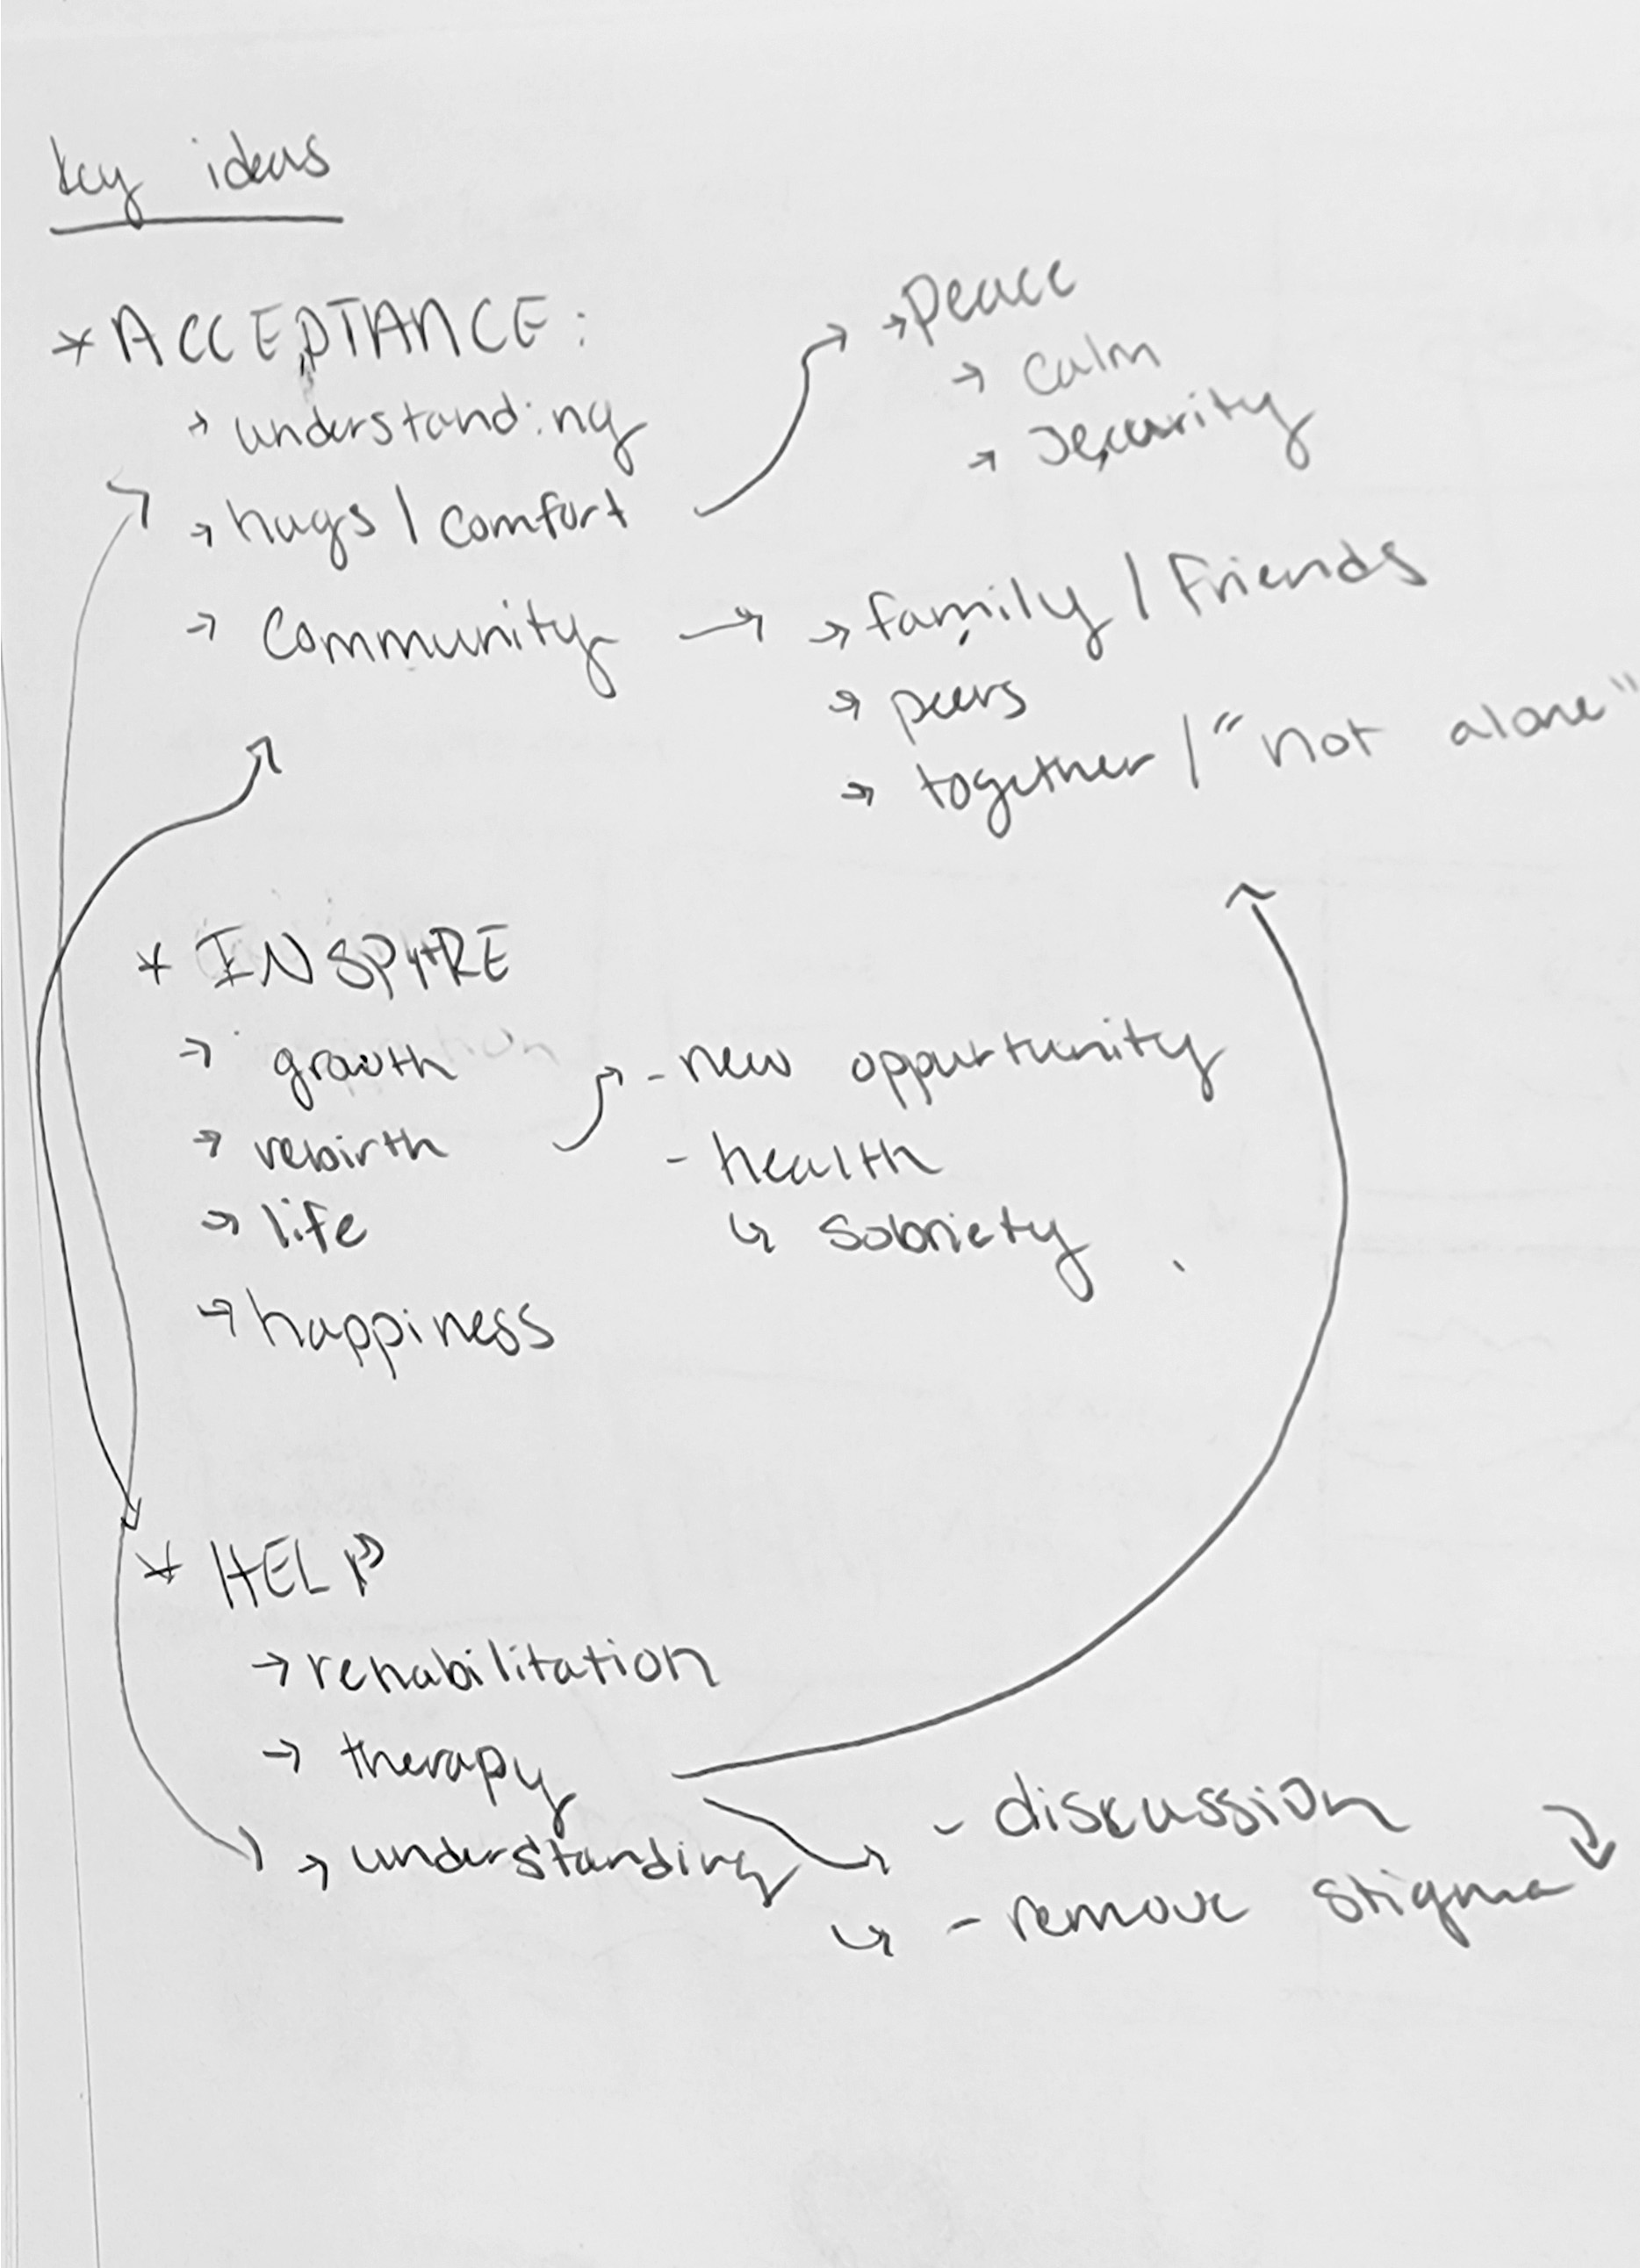 key ideas
* ACCEPTANCE:
→ understanding
→ hugs / comfort
→ Community
→ Peace
→ calm
→ security
→ family / Friends
→ peers
→ together / "not alone"
* INSPIRE
→ growth
→ rebirth
→ life
→ happiness
- new oppurtunity
- health
↳ sobriety
* HELP
→ rehabilitation
→ therapy
→ understanding
- discussion
- remove stigma